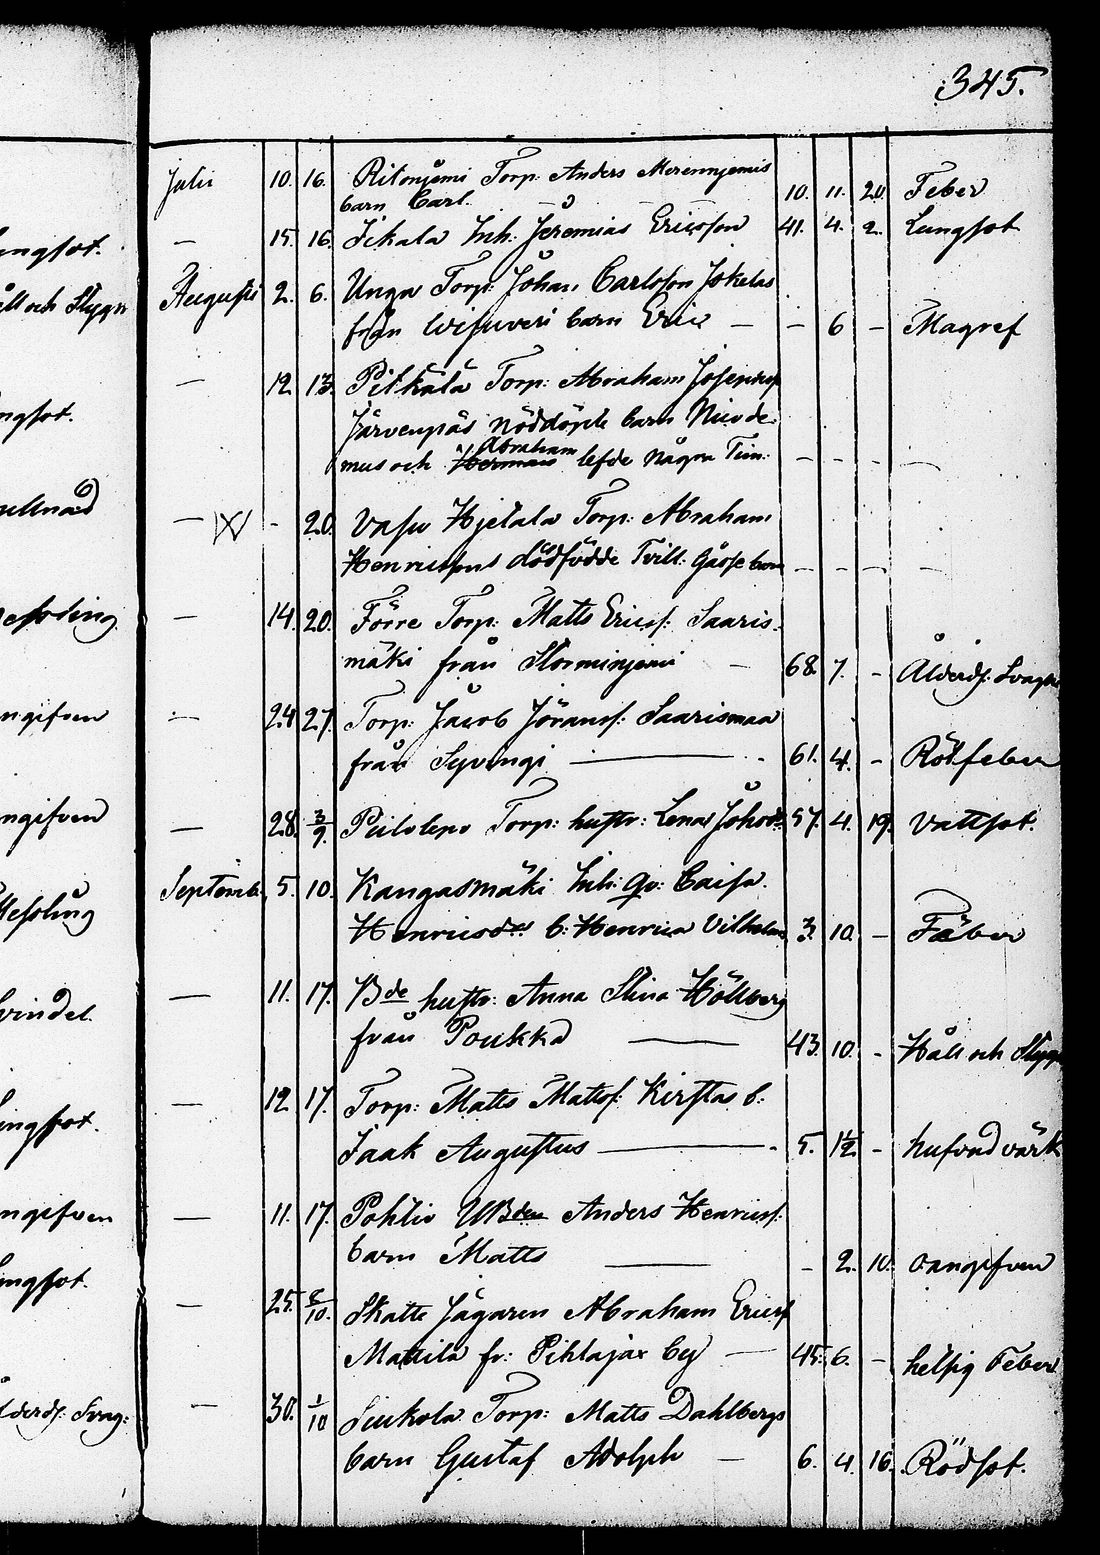 345.
Julii 10. 16. Ritoniemi Torp: Anders Merenniemis
barn Carl. 10. 11. 20. Feber
— 15. 16. Iikala Inh: Jeremias Ericsson 41. 4. 2. Lungsot
Augusti 2. 6. Unga Torp: Johan Carlsson Jokelas
från barn Eric — — 6 — Magref
— 12. 13. Pitkälä Torp: Abraham
Järvenpäs nöddöpte barn Nicode-
mus och Abraham lefde några Tim: - - - -
— - 20. Vasu Hjelala Torp: Abraham
Henricssons dödfödde Tvill: Gosse barn - - - -
— 14. 20. Förre Torp: Matts Ericss: Saaris-
mäki från — 68. 7. - Ålderds: Svaghet
— 24. 27. Torp: Jacob Jöranss: Saarismaa
från Syvingi — 61. 4. - Rötfeber
— 28. 3/9. Torp: hustr: Lena Johsdr 57. 4. 19. Vattsot.
Septemb. 5. 10. Kangasmäki Inh: Qv: Caisa
Henricsdrs b: Henrica Vilhelmina 3. 10. — Fäber
— 11. 17. Bde hustr: Anna Stina Hölberg
från Poukka — 43. 10. - Håll och Styng
— 12. 17. Torp: Matts Mattss: Kirstas b:
Isaak Augustus — 5. 1½ - hufvud värk
— 11. 17. Pohtio UBden Anders Henricss:
barn Matts — - 2. 10. oangifven
— 25. 8/10. Skatte Jägaren Abraham Ericss
Mattila fr: Pihlajax by — 45. 6. - hetsig Feber
— 30. 1/10 Siukola Torp: Matts Dahlbergs
barn Gustaf Adolph — 6. 4. 16. Rödsot.
ungsot.
åll och Styng
ngsot.
ngifven
ngifven
ingsot.
ngifven
ungsot.
lderds: Svag: